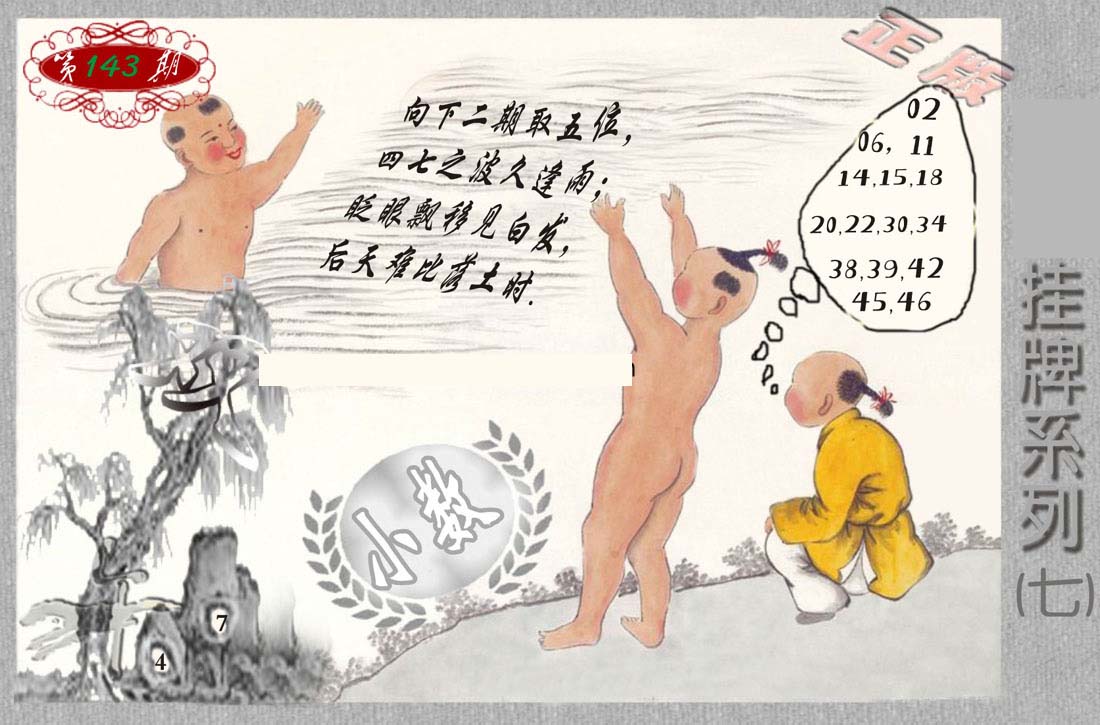 第143期
正版
向下二期取五位，
四七之波久逢雨；
眨眼飘移见白发，
后天难比落土时.
02
06, 11
14,15,18
20,22,30,34
38,39,42
45,46
挂牌系列(七)
小数
7
4